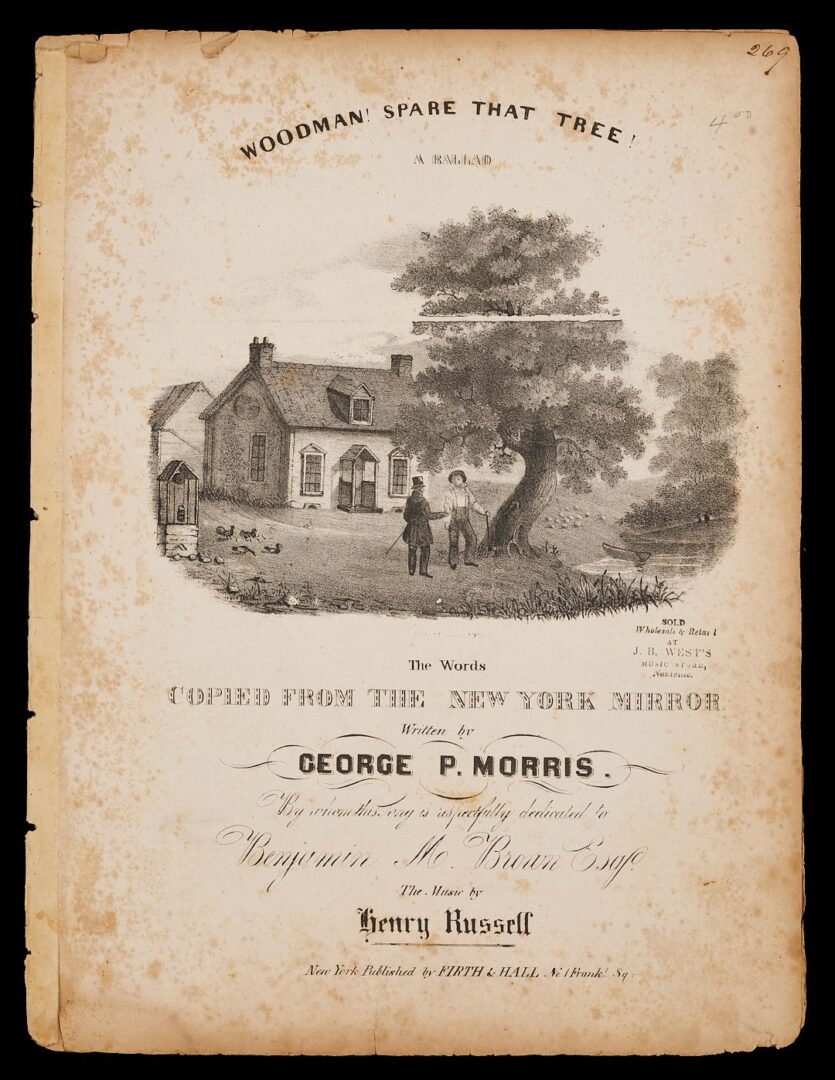 269
4 00
WOODMAN! SPARE THAT TREE!
A BALLAD
SOLD
Wholesale & Retail
AT
J. B. WEST'S
MUSIC STORE,
The Words
COPIED FROM THE NEW YORK MIRROR
Written by
GEORGE P. MORRIS.
By whom this song is respectfully dedicated to
Benjamin M. Brown Esqr.
The Music by
Henry Russell
New York Published by FIRTH & HALL No 1 Frankn. Sq.